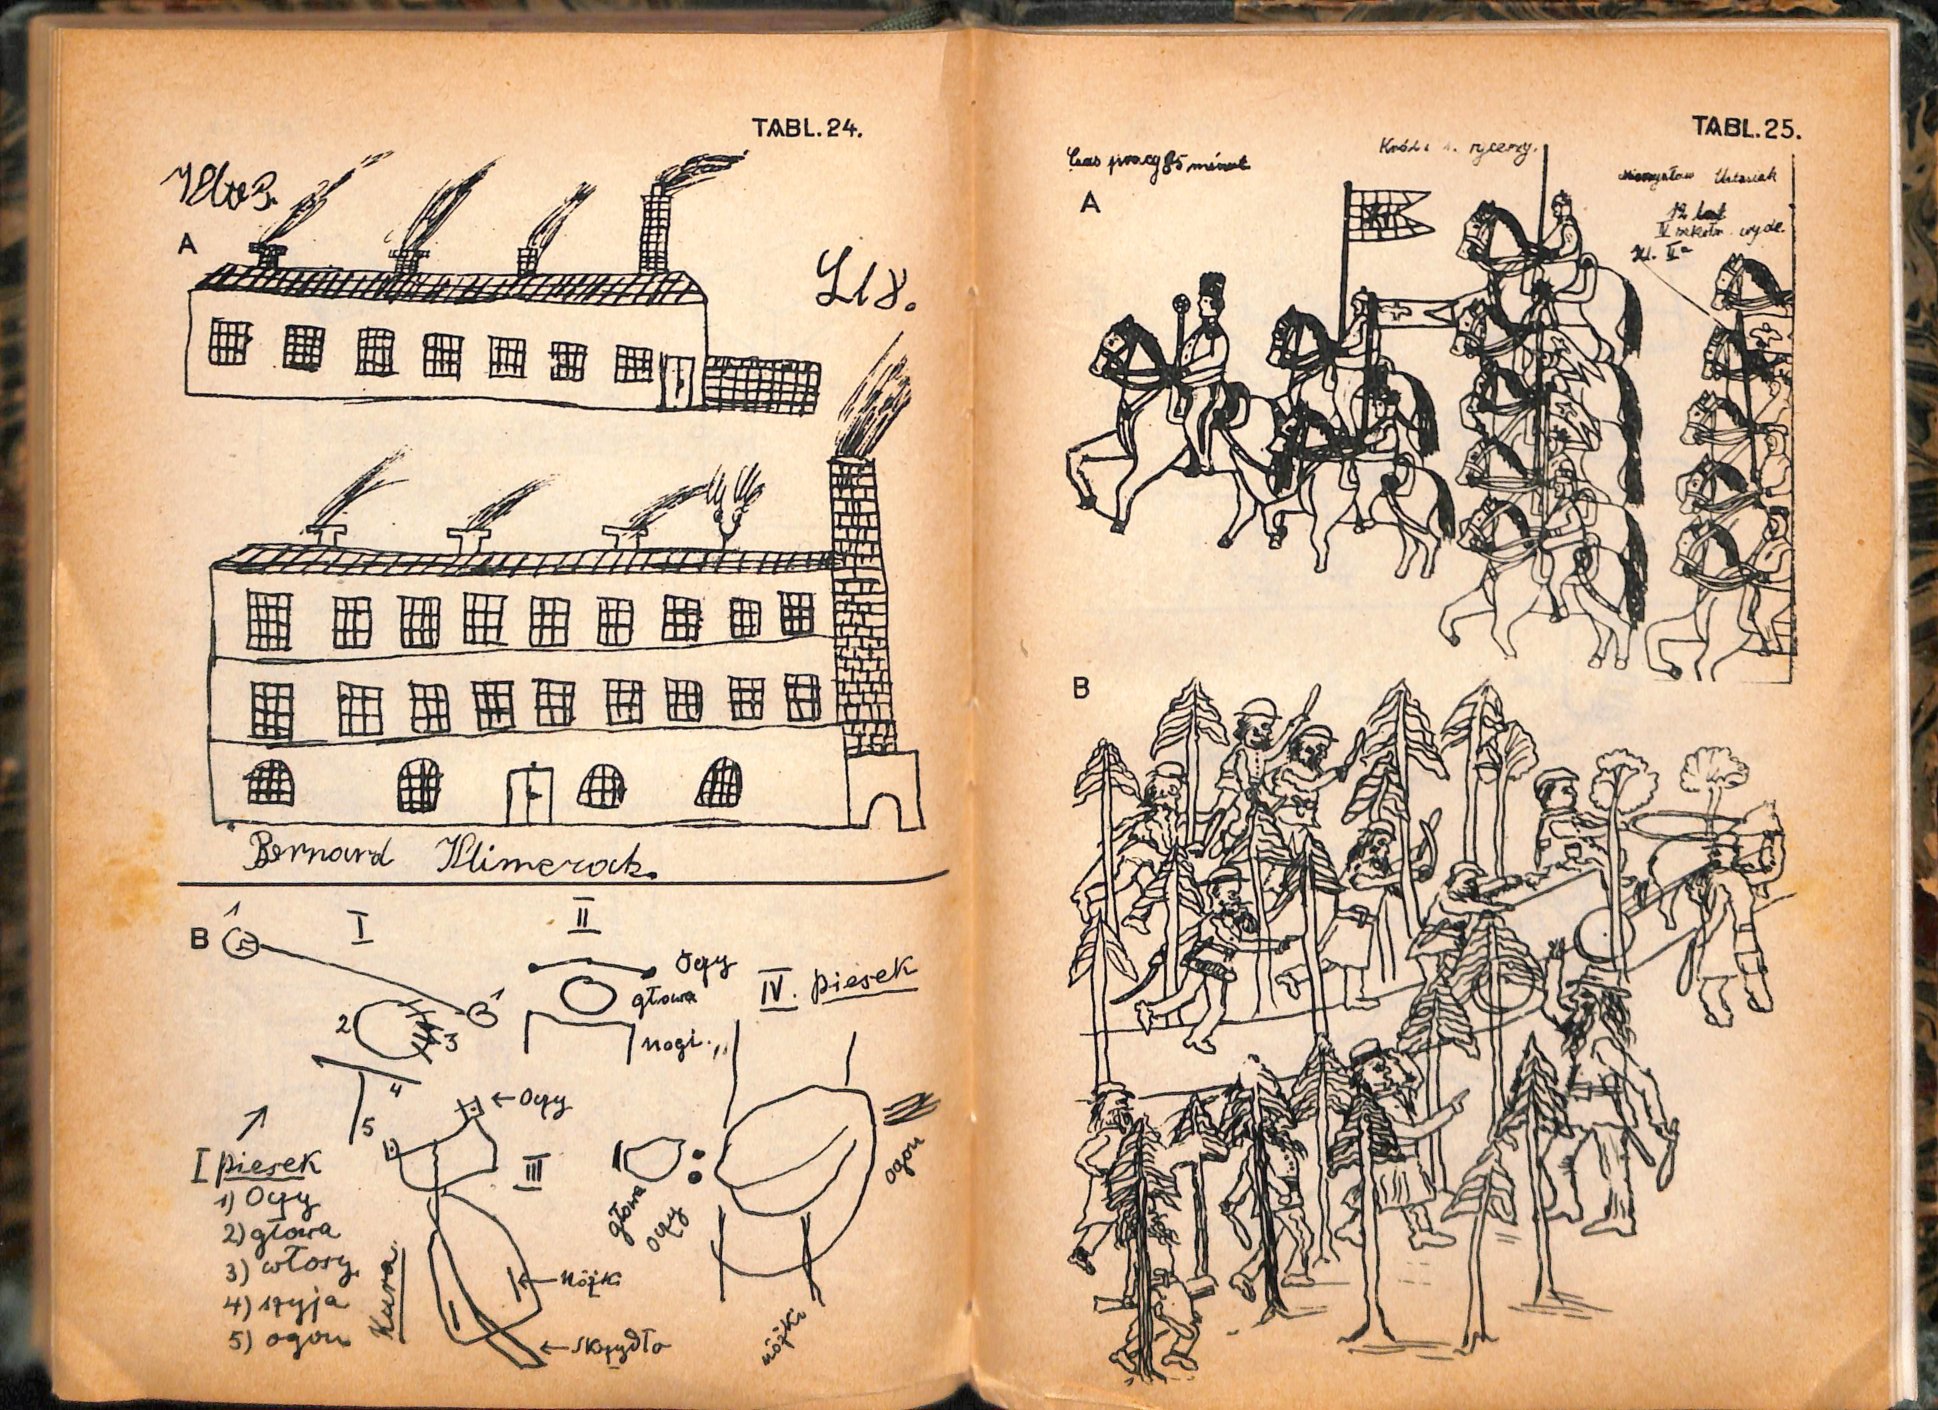 TABL.24.
A
L 8.
Bernard Klimerock.
B
I
II
1
5
2
3
4
5
Oczy
głowa
nogi.
IV. piesek
I piesek
1) Oczy
2) głowa
3) włosy.
4) szyja
5) ogon
III
Kura.
←Oczy
←nóżki
←skrzydło
głowa
oczy
ogon
nóżki
TABL.25.
Czas pracy 85 minut
rycerzy.
A
Mieczysław Urbaniak
12 lat
IV szkoła wydz.
kl. Va
B